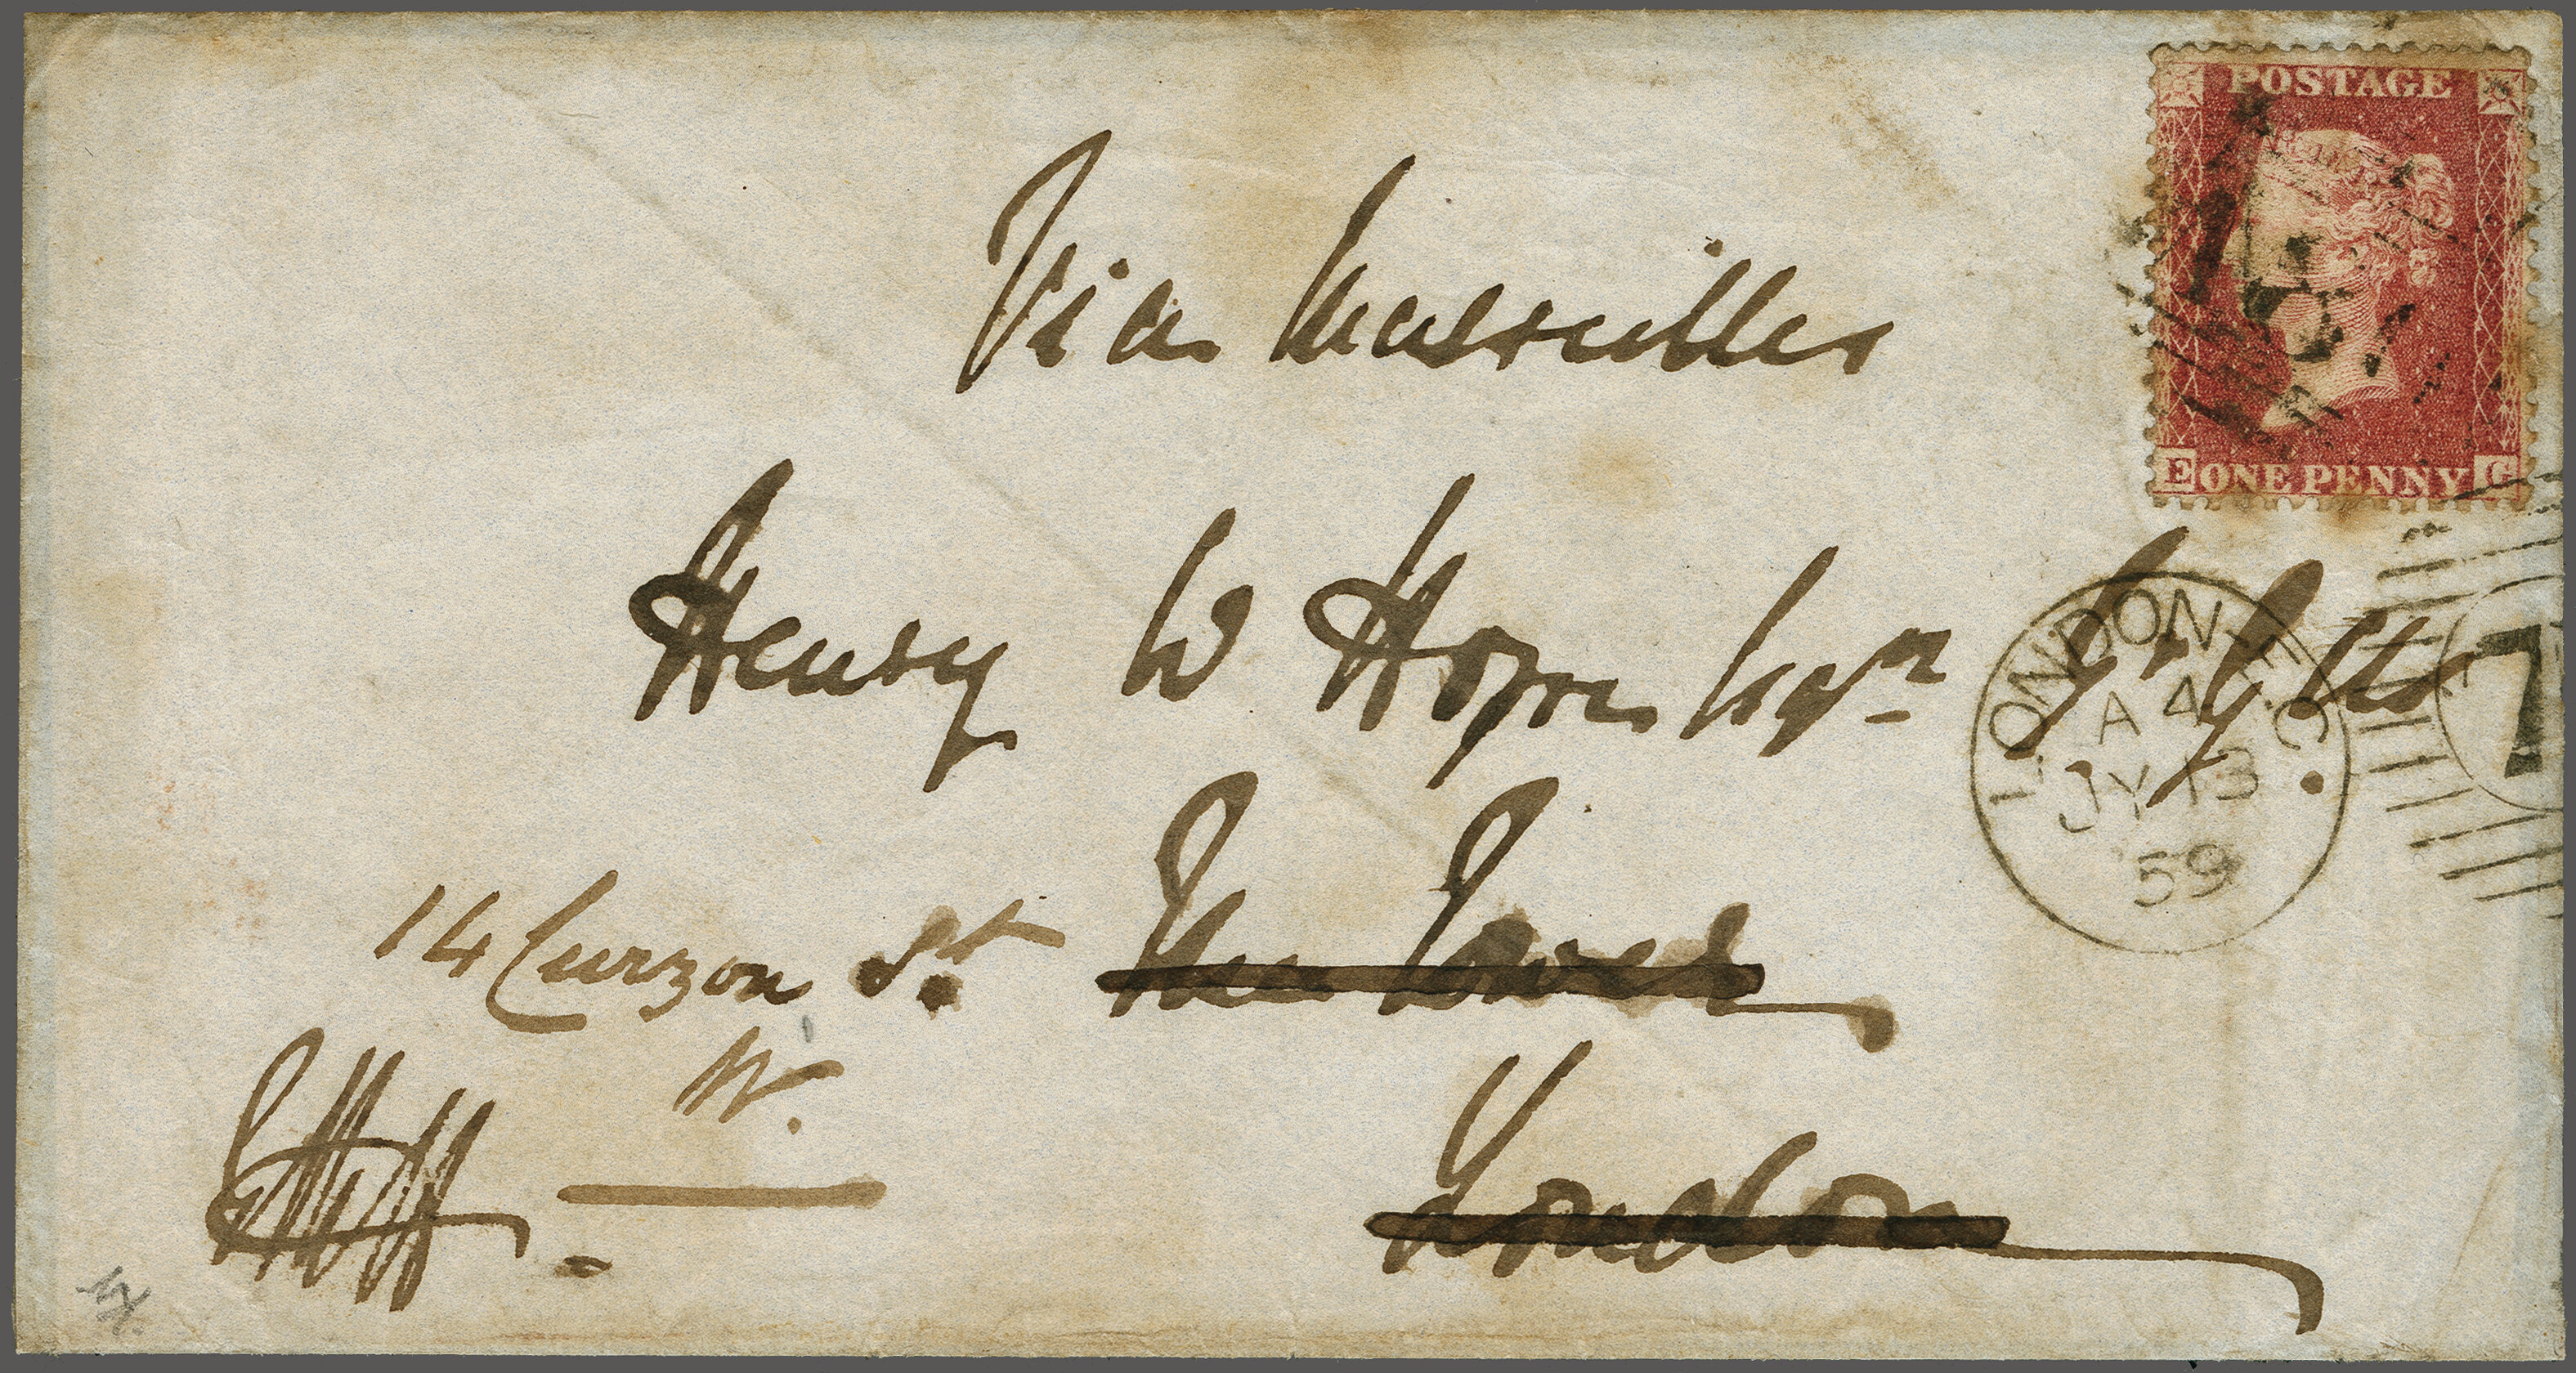 POSTAGE
E ONE PENNY G
Via Marseilles
Henry W Hope Esqre
LONDON E.C
A 4
JY 13
59
7
14 Curzon St
W.
London